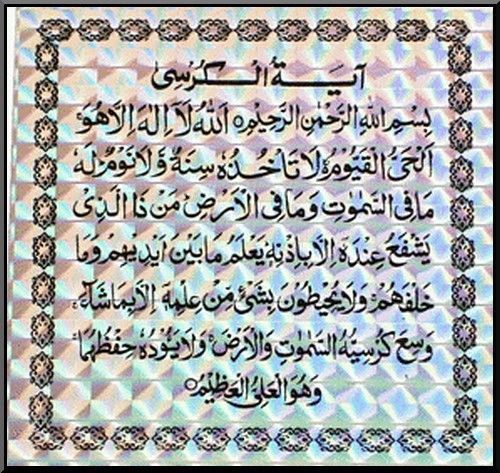 آية الكرسى
بِسْمِ اللهِ الرَّحْمٰنِ الرَّحِيْمِ اَللهُ لَآ اِلٰهَ اِلَّا هُوَ
اَلْحَىُّ الْقَيُّوْمُ لَا تَاْخُذُهٗ سِنَةٌ وَّلَا نَوْمٌ لَهٗ
مَا فِى السَّمٰوٰتِ وَمَا فِى الْاَرْضِ مَنْ ذَا الَّذِىْ
يَشْفَعُ عِنْدَهٗ اِلَّا بِاِذْنِهٖ يَعْلَمُ مَا بَيْنَ اَيْدِيْهِمْ وَمَا
خَلْفَهُمْ وَلَا يُحِيْطُوْنَ بِشَىْءٍ مِّنْ عِلْمِهٖٓ اِلَّا بِمَا شَآءَ
وَسِعَ كُرْسِيُّهُ السَّمٰوٰتِ وَالْاَرْضَ وَلَا يَئُوْدُهٗ حِفْظُهُمَا
وَهُوَ الْعَلِىُّ الْعَظِيْمُ